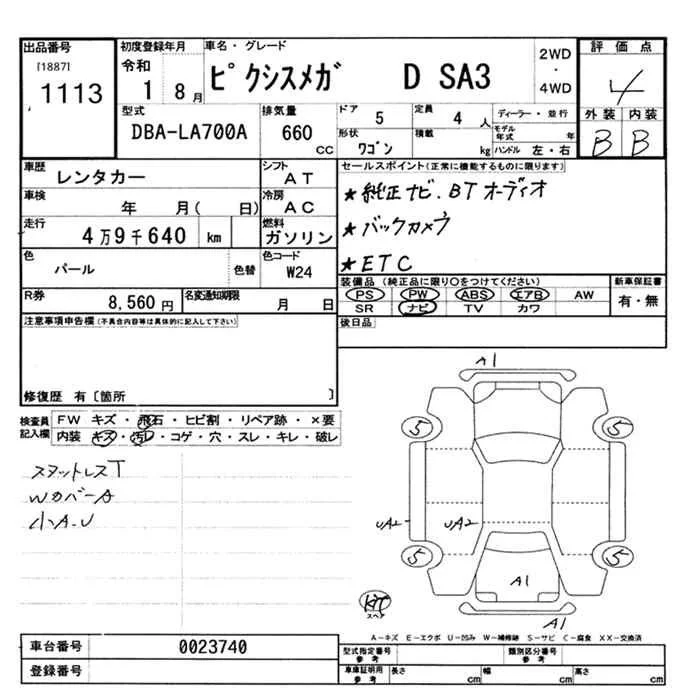 出品番号
[1887]
1113
初度登録年月
令和
1 8月
車名・グレード
ピクシスメガ D SA3
2WD
・
4WD
評価点
4
外装 内装
B B
型式
DBA-LA700A
排気量
660
CC
ドア 5
定員 4 人
形状
ワゴン
積載
kg
ディーラー・並行
モデル年式 年
ハンドル 左・右
車歴
レンタカー
シフト
AT
車検
年 月( 日)
冷房
AC
走行
4万9千640 km
燃料
ガソリン
色
パール
色替
色コード
W24
R券
8,560円
名変通知期限
月 日
セールスポイント(正常に機能するものに限ります)
★純正ナビ.BTオーディオ
★バックカメラ
★ETC
装備品(純正品に限り○をつけてください)
新車保証書
PS PW ABS エアB AW
SR ナビ TV カワ
有・無
後日品
注意事項申告欄(不具合内容等は具体的に記入して下さい)
修復歴 有〔箇所 〕
検査員
記入欄
FW キズ・飛石・ヒビ割・リペア跡・×要
内装 キズ・汚レ・コゲ・穴・スレ・キレ・破レ
スタットレスT
WカバーA
小A.U
A1
5 5
UA2 UA2
5 5
A1
スペア
A1
A-キズ E-エクボ U-凹み W-補修跡 S-サビ C-腐食 XX-交換済
車台番号
0023740
登録番号
型式指定番号
参考
類別区分番号
参考
車庫証明用
参考
長さ cm
幅 cm
高さ cm